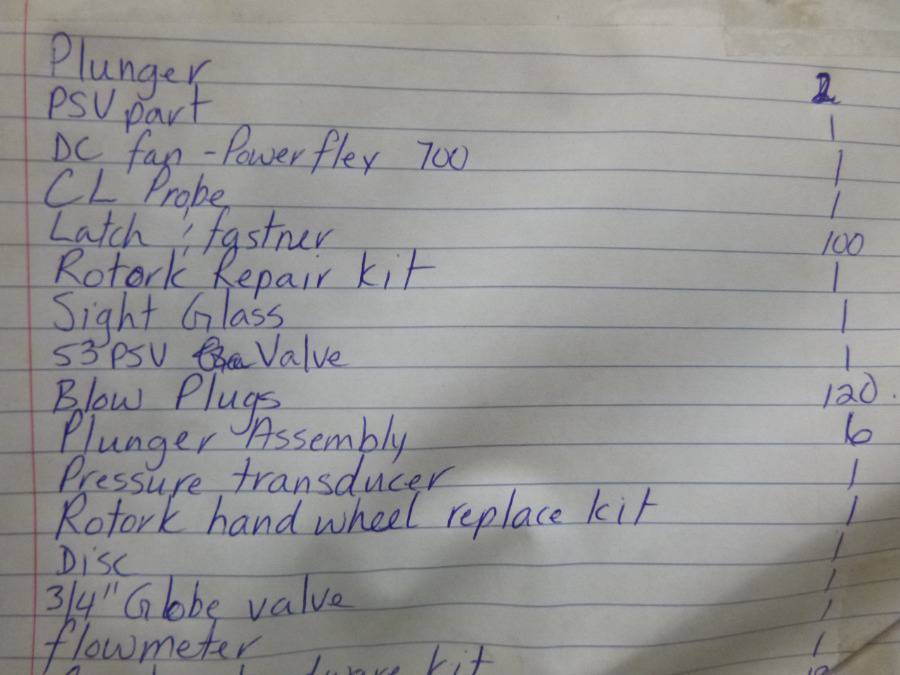 Plunger 2
PSV part 1
DC fan - Powerflex 700 1
CL Probe 1
Latch ; fastner 100
Rotork Repair kit 1
Sight Glass 1
53 PSV Valve 1
Blow Plugs 120
Plunger Assembly 6
Pressure transducer 1
Rotork hand wheel replace kit 1
Disc 1
3/4" Globe valve 1
flowmeter 1
kit 1